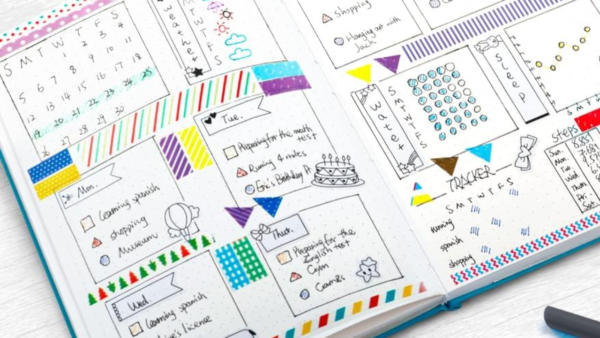 S M T W T F S
1 2 3 4
5 6 7 8 9 10 11
12 13 14 15 16 17 18
19 20 21 22 23 24 25
26 27 28 29 30
weather
S
M
T
W
T
F
S
Mon.
Learning spanish
shopping
Museum
Tue.
Preparing for the math
test
Eric's Birthday
Wed
learning spanish
license
Thur.
Preparing for the
English test
Gym
Games
shopping
Hanging out with
Jack
water
S
M
T
W
T
F
S
SLEEP
S M T
STEPS
Sun.
Mon.
Tue.
Wed
Thu.
Fri.
Sat
TRACKER
S M T W T F S
running
spanish
shopping